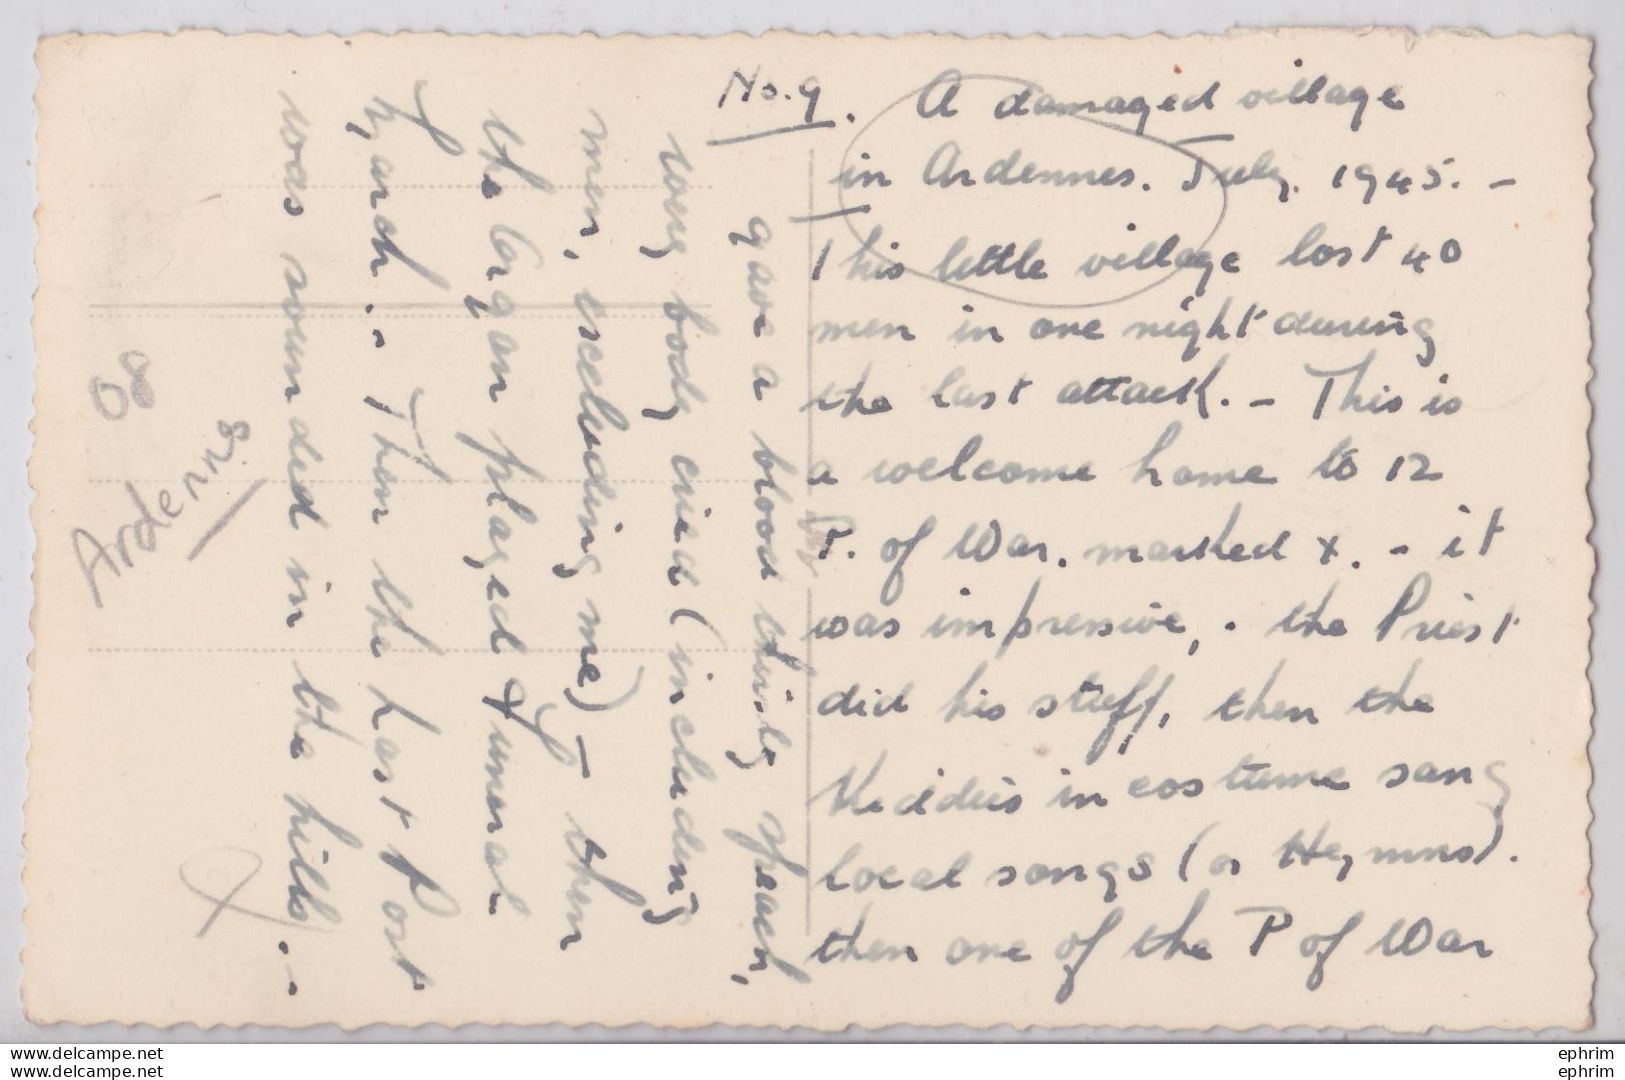 No. 9. A damaged village
in Ardennes. July. 1945. –
This little village lost 40
men in one night during
the last attack. – This is
a welcome home to 12
P. of War. marked x. – it
was impressive, . the Priest
did his stuff, then the
Kiddies in costume sang
local songs (or Hymns).
then one of the P of War
gave a blood thirsty speach,
every body cried (including
men, excluding me) – then
the organ played Funeral
March. – Then the Last Post
was sounded in the hills. –
60
8.
Ardenn
www.delcampe.net
www.delcampe.net
ephrim
ephrim